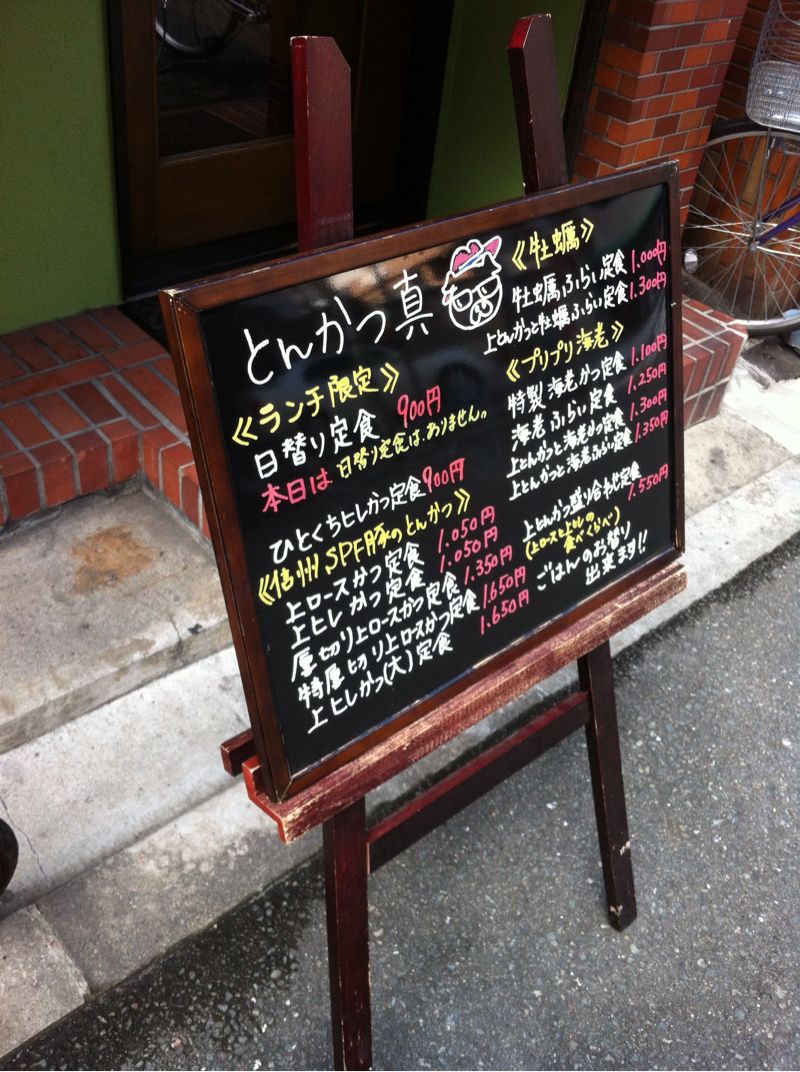 とんかつ真
《ランチ限定》
日替り定食 900円
本日は日替り定食は、ありません。
ひとくちヒレかつ定食 900円
《信州SPF豚のとんかつ》
上ロースかつ定食 1.050円
上ヒレかつ定食 1.050円
厚切り上ロースかつ定食 1.350円
特厚切り上ロスかつ定食 1.650円
上ヒレかつ(大)定食 1.650円
《牡蠣》
牡蠣ふらい定食 1.000円
上とんかつと牡蠣ふらい定食 1.300円
《プリプリ海老》
特製海老かつ定食 1.100円
海老ふらい定食 1.250円
上とんかつと海老かつ定食 1.300円
上とんかつと海老ふらい定食 1.350円
上とんかつ盛り合わせ定食 1.550円
(上ロースと上ヒレの
食べくらべ)
ごはんのお替り
出来ます!!